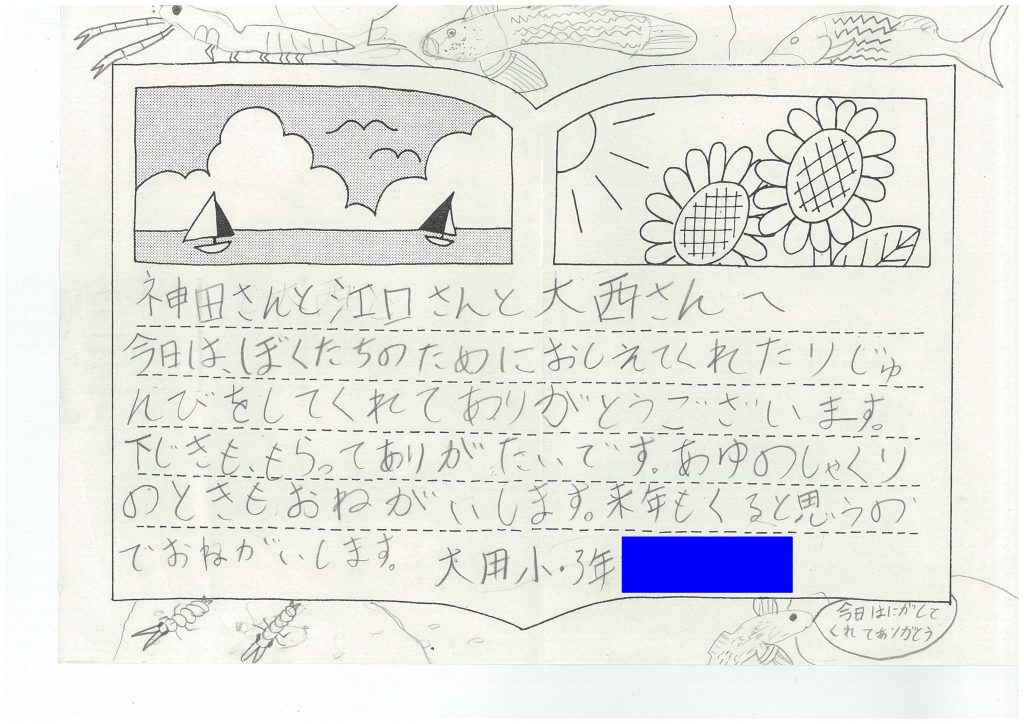 神田さんと江口さんと大西さんへ
今日は、ぼくたちのためにおしえてくれたりじゅ
んびをしてくれてありがとうございます。
下じきも、もらってありがたいです。あゆのしゃくり
のときもおねがいします。来年もくると思うの
でおねがいします。 大用小・3年
今日はにがして
くれてありがとう